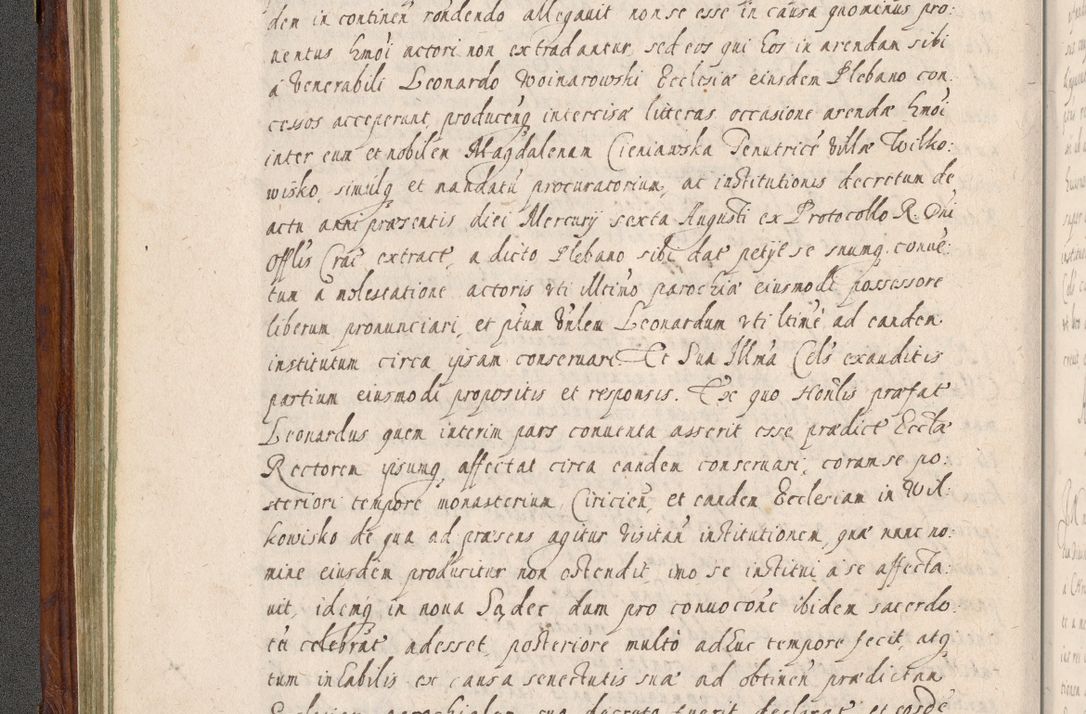 den in continen̄ rondendo allegauit non se esse in causa quominus pro:
uentus hmoi actori non extradantur, sed eos qui Eos in arendam sibi
a Venerabili Leonardo Woinarowski Ecclesiæ eiusdem Plebano con:
cessos acceperunt, producenq intercisæ litteras occasione arendæ hmoi
inter eum et nobilem Magdalenam Cieniawska Tenutricē Villæ Wilko:
wisko, simulq et mandatū procuratorium, ac institutionis decretum de
actu anni præsentis diei Mercurij sexta Augusti ex Protocollo R. Dni
Offlis Crac extract, a dicto Plebano sibi dat petijt se suumq. conuē:
tum a molestatione actoris vti illtimo parochiæ eiusmodi possessore
liberum pronunciari, et ptum Vnlem Leonardum vti ltimē ad eandem
institutum circa ipsam conseruare. Et Sua Illma Cels exauditis
partium eiusmodi propositis et responsis. Ex quo Honlis præfat
Leonardus quem interim pars conuenta asserit esse prædictē Ecclæ
Rectorem ipsumq affectat circa eandem conseruari, coram se po:
steriori tempore monasterium Ciricien̄, et eandem Ecclesiam in Wil:
kowisko de qua ad præsens agitur visitan̄ institutionem, quæ nunc no:
mine eiusdem producitur non ostendit, imo se institui a se affecta:
uit, idemq in noua Sądec dum pro conuoconē ibidem sacerdo:
tū celebrat adesset, posteriore multò adhuc tempore fecit, atq
tum inhabilis ex causa senectutis suæ ad obtinen̄ prædictam
Ecclesiam parochialem sua decreta fuerit declarat et eosdē